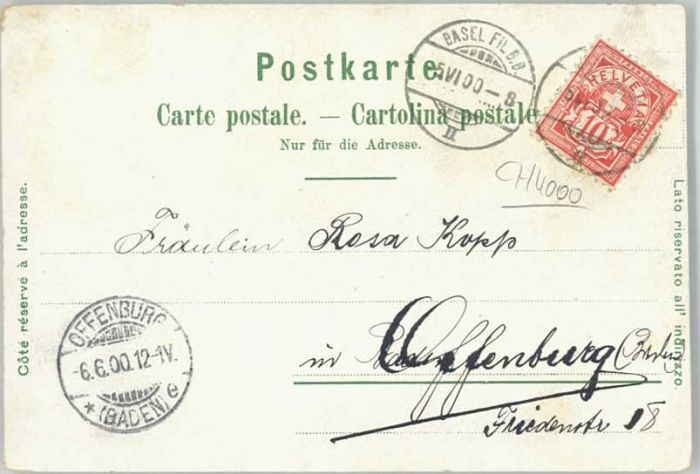 Postkarte.
Carte postale. — Cartolina postale
Nur für die Adresse.
BASEL FIL.B.B.
5VI00-8
II
HELVETIA
10
CH4000
Côté réservé à l'adresse.
Lato riservato all' indirizzo.
Fräulein Rosa Kopp
in Offenburg (Baden
Friedenstr 18
OFFENBURG
-6.6.00.12-1V.
* (BADEN) e